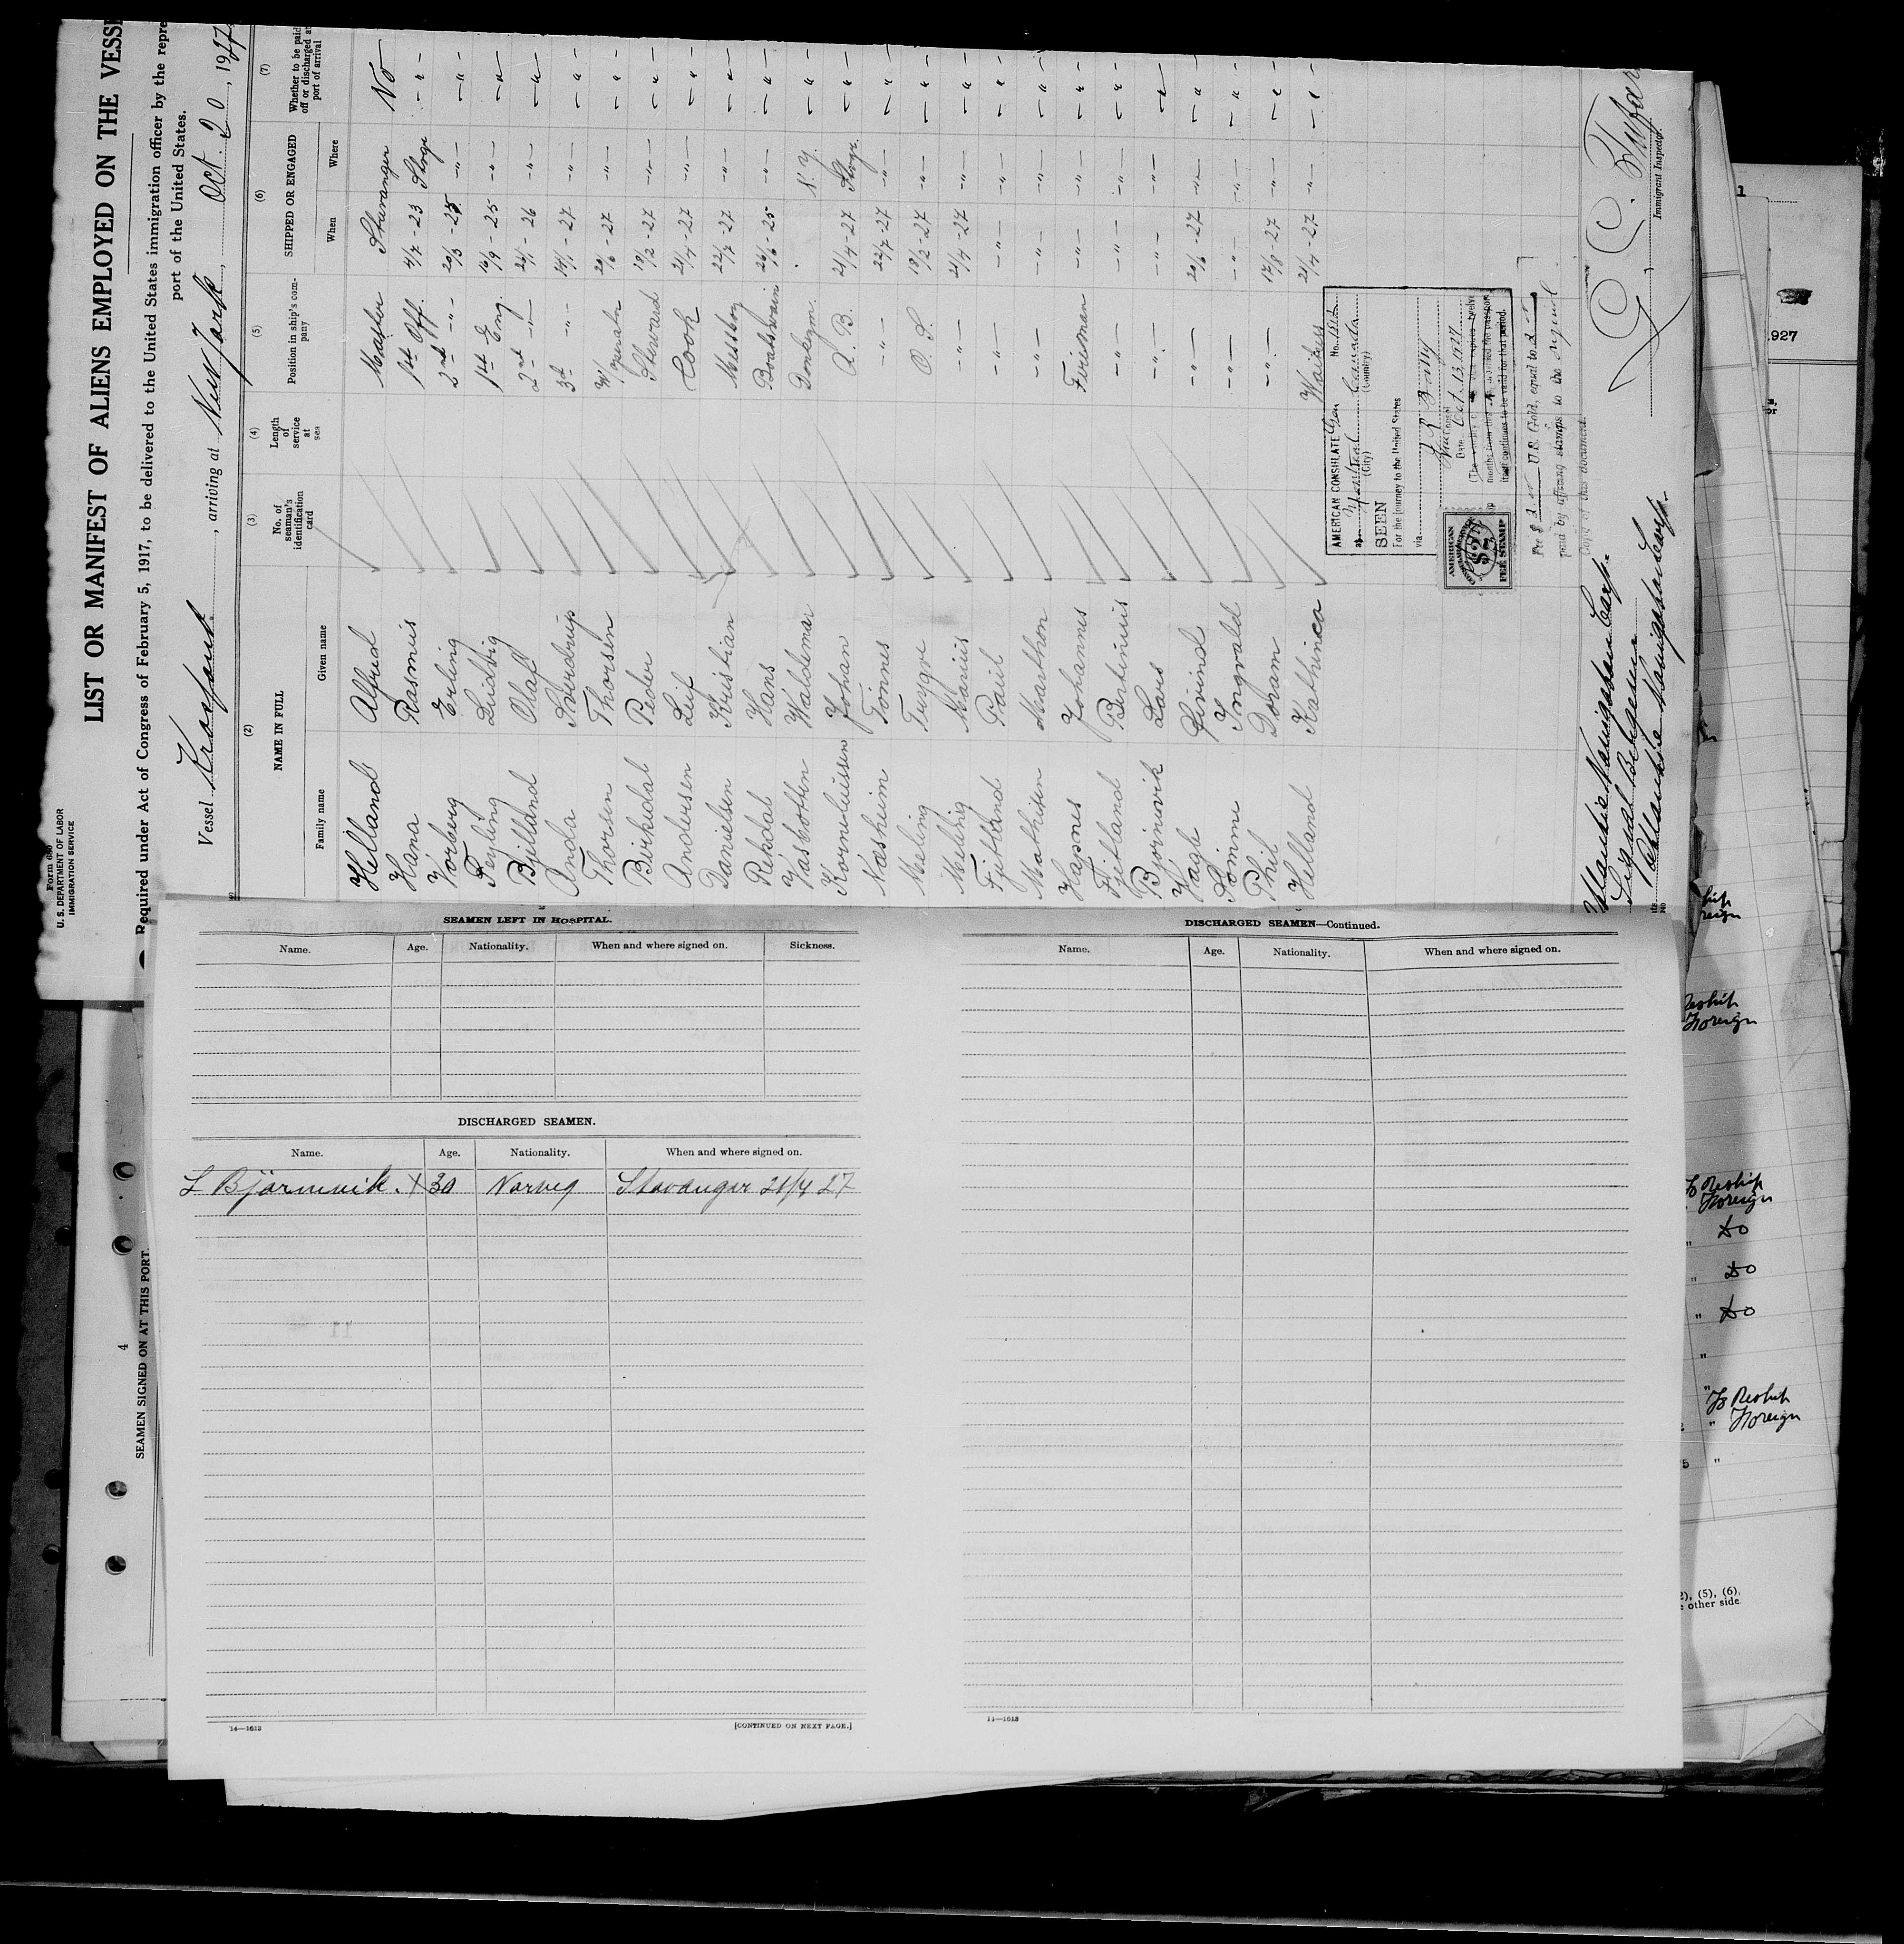 Form 680
U. S. DEPARTMENT OF LABOR
IMMIGRATION SERVICE
LIST OR MANIFEST OF ALIENS EMPLOYED ON THE VESSE
Required under Act of Congress of February 5, 1917, to be delivered to the United States immigration officer by the repre
port of the United States.
Vessel Krosfond, arriving at New York, Oct. 20, 1927
(2) (3) (4) (5) (6) (7)
NAME IN FULL
Family name Given name
No. of seaman's identification card
Length of service at sea
Position in ship's company
SHIPPED OR ENGAGED
When Where
Whether to be paid off or discharged at port of arrival
Helland Alfred Master Stavanger No
Hana Rasmus 1st Off. 4/7 - 23 Stvgr - " -
Vorberg Erling 2nd - " - 20/3 - 25 - " - - " -
Teyling Ludvig 1st Eng. 16/9 - 25 - " - - " -
Bjelland Olaf 2nd - " - - 26 - " - - " -
Anda Sverdrup 3d - " - - 27 - " - - " -
Thorsen Thorsen 20/6 - 27 - " - - " -
Birkedal Peder Steward 19/2 - 27 - " - - " -
Andersen Leif Cook 21/4 - 27 - " - - " -
Danielsen Kristian Messboy 22/7 - 27 - " - - " -
Rekdal Hans Boatswain 26/6 - 25 - " - - " -
Vasbotten Waldemar Donkeym. N. Y. - " -
Korneliussen Johan A. B. 21/4 - 27 Stvgr. - " -
Næsheim Tønnes - " - 22/7 - 27 - " - - " -
Meling Trygve O. S. 19/2 - 27 - " - - " -
Meling Marius - " - 21/4 - 27 - " - - " -
Fjetland Paul - " - - " - - " - - " -
Mathisen Marthon - " - - " - - " - - " -
Hapnes Johannes Fireman - " - - " - - " -
Fjetland Bertinius - " - - " - - " - - " -
Bjørnevik Lars - " - - " - - " - - " -
Vagle Eivind - " - 20/6 - 27 - " - - " -
Sømme Ingvald - " - - " - - " - - " -
Phil Doham - " - 17/8 - 27 - " - - " -
Helland Kathinca Waitress 21/4 - 27 - " - - " -
AMERICAN CONSULATE Gen No.
at Montreal Canada
(City) (Country)
SEEN
For the journey to the United States
via
Date Oct. 13, 1927
AMERICAN
$2
FEE STAMP
U.S. Gold, equal to
paid by affixing stamps to the original
Copy of this document.
Immigrant Inspector.
Navigation Corp.
Navigation Corp.
SEAMEN LEFT IN HOSPITAL.
Name. Age. Nationality. When and where signed on. Sickness.
DISCHARGED SEAMEN.
Name. Age. Nationality. When and where signed on.
L Bjørnevik. X 30 Norveg Stavanger 21/4 27
14—1613
[CONTINUED ON NEXT PAGE.]
DISCHARGED SEAMEN—Continued.
Name. Age. Nationality. When and where signed on.
14—1613
4
SEAMEN SIGNED ON AT THIS PORT
.927
Reship
Foreign
To Reship
Foreign
" do
" do
" do
"
" To Reship
" Foreign
5 "
), (5), (6),
other side